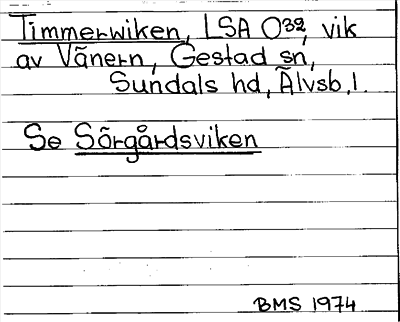 Timmerwiken, LSA O³², vik
av Vänern, Gestad sn,
Sundals hd, Älvsb. l.
Se Sörgårdsviken
BMS 1974